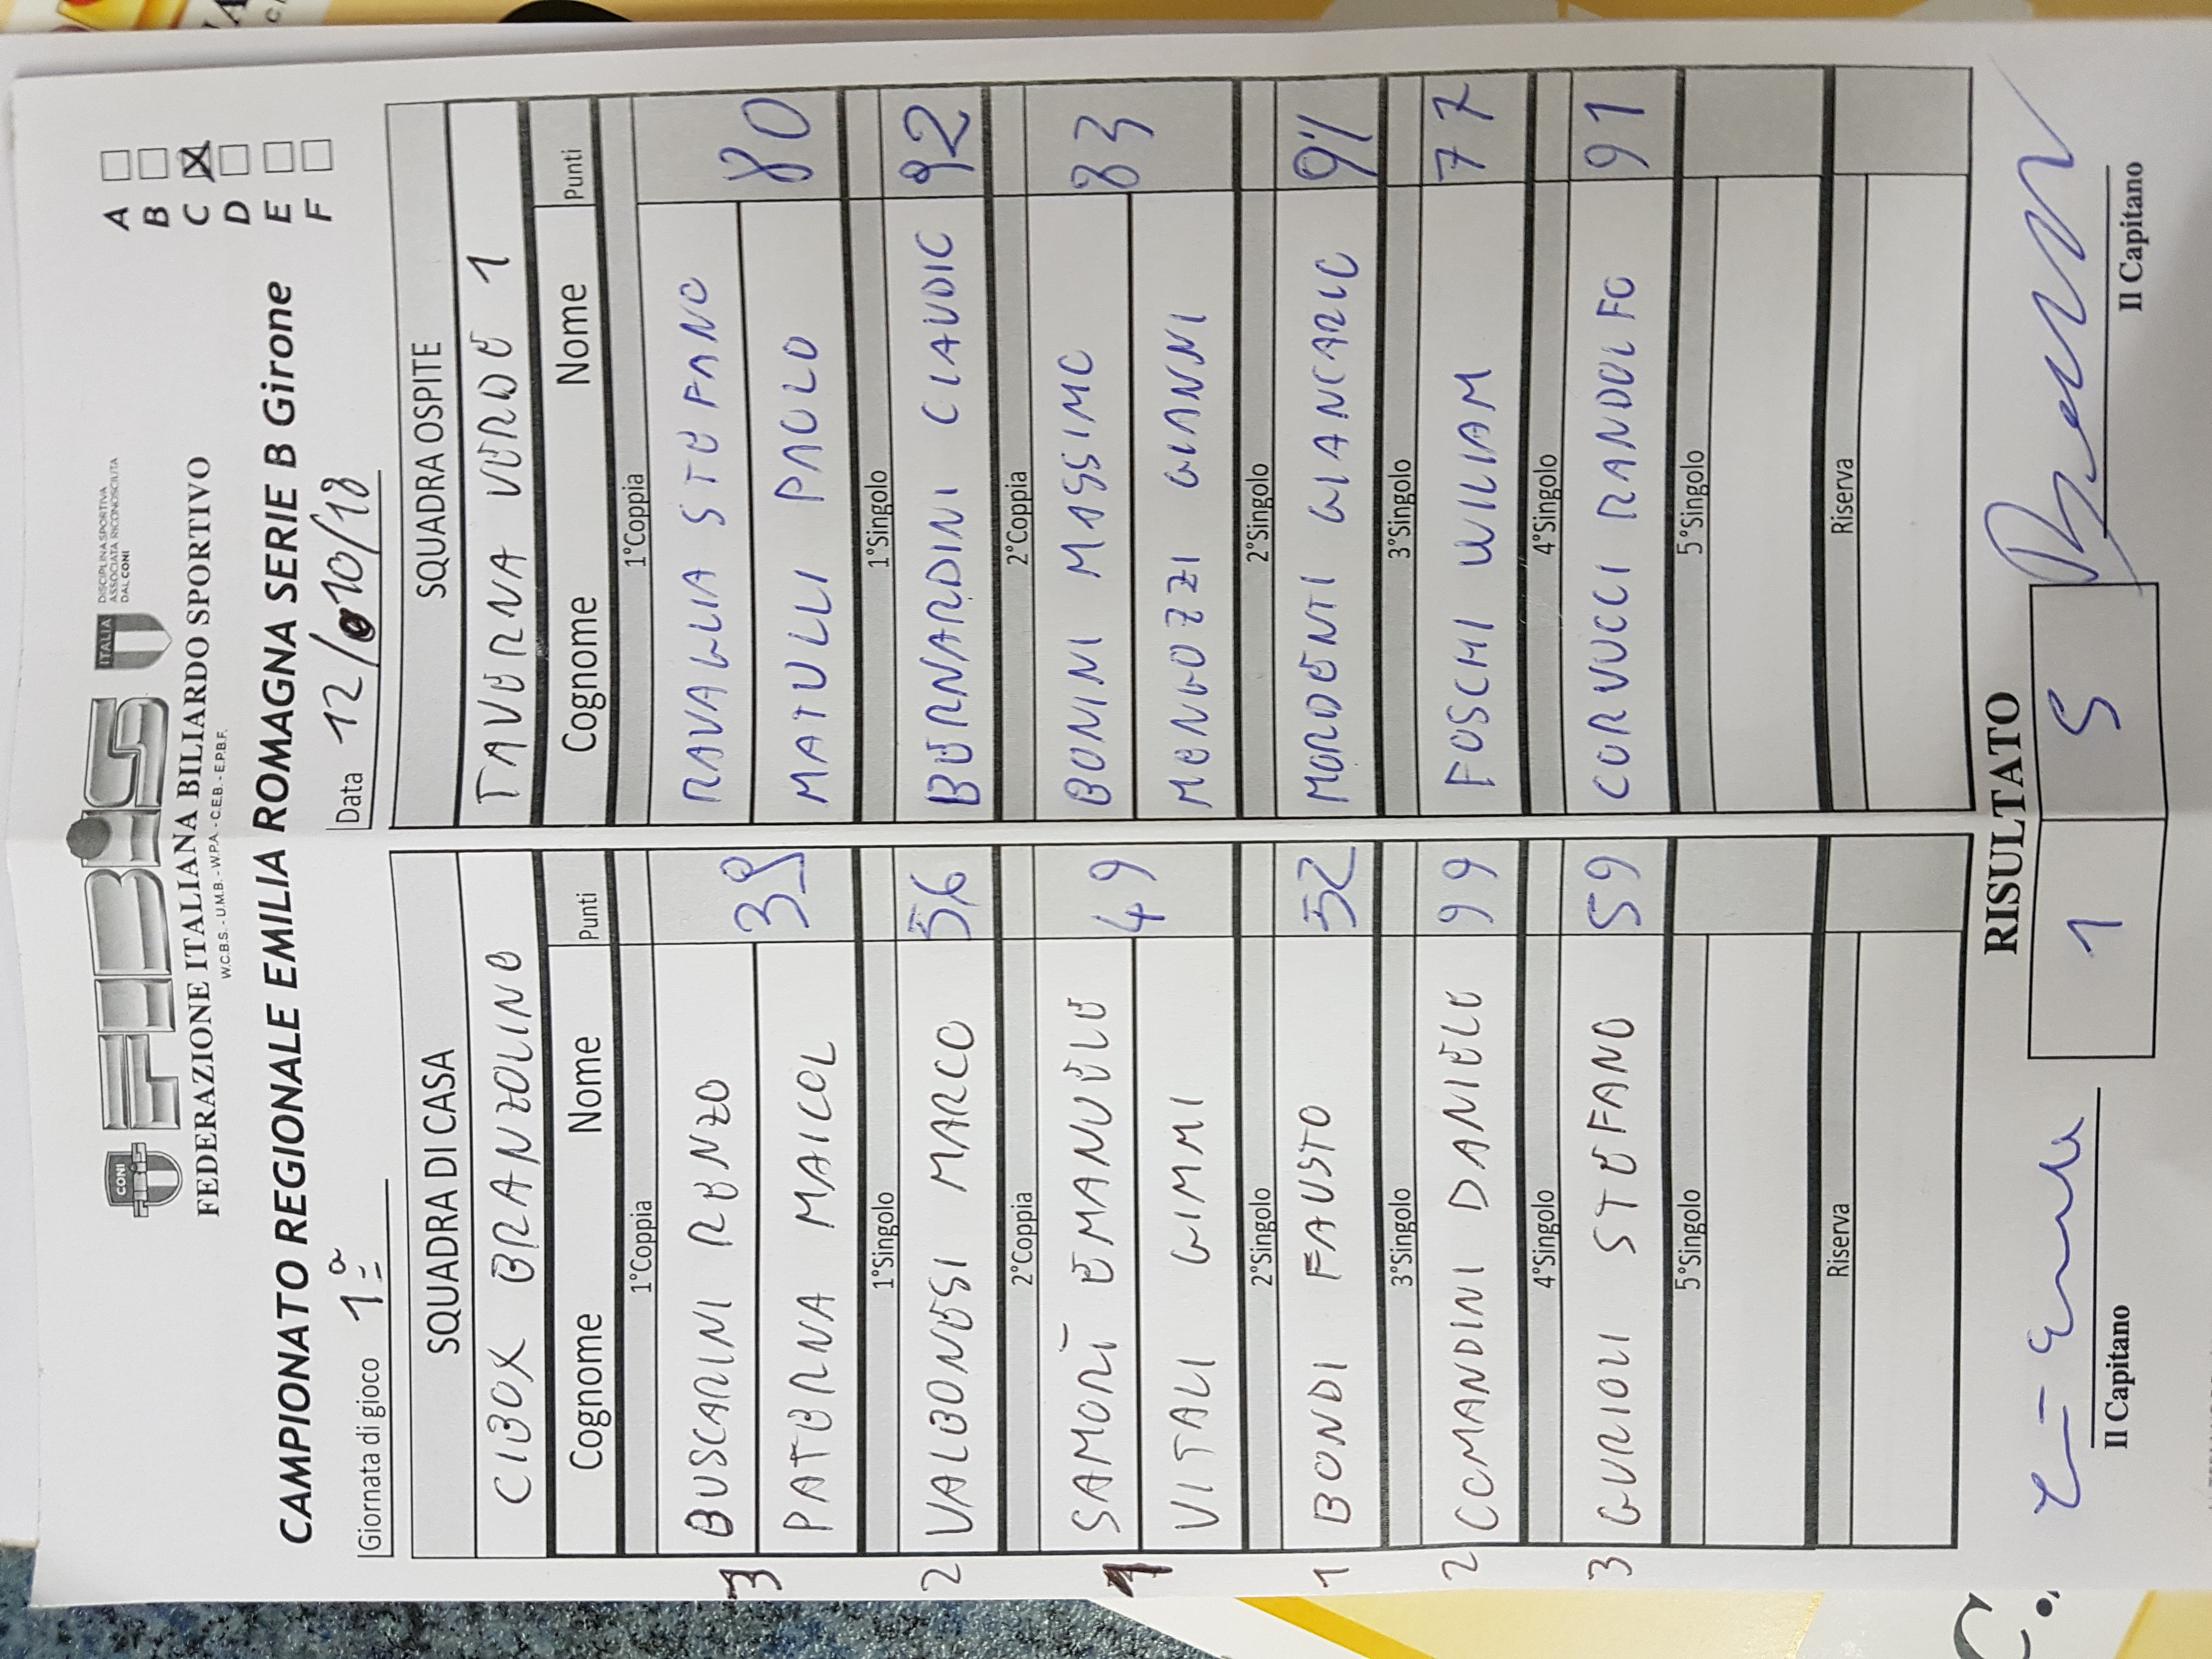 CONI
FIBiS
ITALIA
DISCIPLINA SPORTIVA
ASSOCIATA RICONOSCIUTA
DAL CONI
FEDERAZIONE ITALIANA BILIARDO SPORTIVO
W.C.B.S. - U.M.B. - W.P.A. - C.E.B. - E.P.B.F.
CAMPIONATO REGIONALE EMILIA ROMAGNA SERIE B Girone
A
B
C X
D
E
F
Giornata di gioco 1ª
Data 12/10/18
SQUADRA DI CASA SQUADRA OSPITE
CIBOX BRANZOLINO TAVERNA VERDE 1
Cognome Nome Punti Cognome Nome Punti
1°Coppia 1°Coppia
3 BUSCARINI RENZO RAVAGLIA STEFANO
PATERNA MAICOL 39 MATULLI PAOLO 80
1°Singolo 1°Singolo
2 VALBONESI MARCO 56 BERNARDINI CLAUDIO 92
2°Coppia 2°Coppia
1 SAMORÌ EMANUELE 49 BONINI MASSIMO 83
VITALI GIMMI MENGOZZI GIANNI
2°Singolo 2°Singolo
1 BONDI FAUSTO 52 MORDENTI GIANCARLO
3°Singolo 3°Singolo
2 COMANDINI DANIELE 99 FOSCHI WILIAM 77
4°Singolo 4°Singolo
3 GURIOLI STEFANO 59 CORVUCCI RANDOLFO 91
5°Singolo 5°Singolo
Riserva Riserva
RISULTATO
1 5
Il Capitano Il Capitano